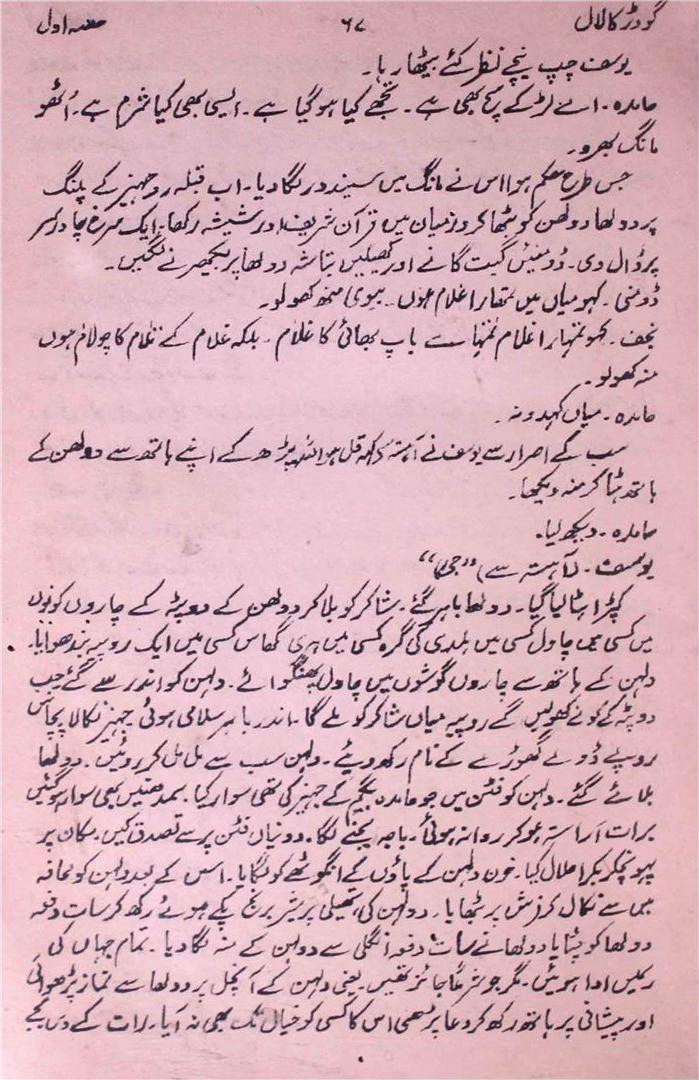 گودڑ کا لال ۶۷ حصہ اول
یوسف چپ نیچے نظر کئے بیٹھا رہا۔
حامدہ۔ اے لڑکے سچ بھی ہے۔ تجھے کیا ہو گیا ہے۔ ایسی بھی کیا شرم ہے۔ اُٹھو
مانگ بھرو۔
جس طرح حکم ہوا اس نے مانگ میں سیندور لگا دیا۔ اب قبلہ رو جہیز کے پلنگ
پر دولھا دولھن کو بٹھا کر درمیان میں قرآن شریف اور شیشہ رکھا۔ ایک سرخ چادر سر
پر ڈال دی۔ ڈومنیں گیت گانے اور کھیلیں بتاشہ دولھا پر بکھیرنے لگیں۔
ڈومنی۔ کہو میاں میں تمھارا غلام ہوں۔ بیوی منھ کھولو۔
نجف۔ کہو تمہارا غلام تمہارے باپ بھائی کا غلام۔ بلکہ غلام کے غلام کا غلام ہوں
منہ کھولو۔
حامدہ۔ میاں کہدو نہ۔
سب کے اصرار سے یوسف نے آہستہ کہہ قل ہو اللہ پڑھ کے اپنے ہاتھ سے دولھن کے
ہاتھ ہٹا کر منہ دیکھا۔
حامدہ۔ دیکھ لیا۔
یوسف۔ (آہستہ سے) "جی"
کپڑا ہٹا لیا گیا۔ دولھا باہر گئے۔ شاکر کو بلا کر دولھن کے دوپٹہ کے چاروں کونوں
میں کسی میں چاول کسی میں ہلدی کی گرہ کسی میں ہری گھاس کسی میں ایک روپیہ بندھوایا۔
دلہن کے ہاتھ سے چاروں گوشوں میں چاول پھنکوائے۔ دلہن کو اندر سے گئے جب
دوپٹہ کے کونے کھولیں گے روپیہ میاں شاکر کو ملے گا۔ اندر باہر سلامی ہوئی جہیز نکالا پچاس
روپے ڈولے گھوڑے کے نام رکھ دیئے۔ دلہن سب سے مل مل کر روئیں۔ دولھا
بلائے گئے۔ دلہن کو فٹن میں جو حامدہ بیگم کے جہیز کی تھی سوار کیا۔ سمدھنیں بھی سوار ہو گئیں
برات آراستہ ہو کر روانہ ہوئی۔ باجہ بجنے لگا۔ دونیاں فٹن پر سے تصدق کیں۔ مکان پر
پہونچکر بکرا حلال کیا۔ خون دلہن کے پاؤں کے انگوٹھے کو لگایا۔ اس کے بعد دلہن کو محافہ
میں سے نکال کر فرش پر بٹھایا۔ دولہن کی ہتھیلی پر شیر برنج پکے ہوئے رکھ کر سات دفعہ
دولھا کو چٹایا دولھا نے سات دفعہ انگلی سے دولہن کے منہ لگا دیا۔ تمام جہاں کی
رسمیں ادا ہوئیں۔ مگر جو شرعاً جائز تھیں۔ یعنی دلہن کے آنچل پر دولھا سے نماز پڑھوائی
اور پیشانی پر ہاتھ رکھ کر دعا پڑھنی اس کا کسی کو خیال تک بھی نہ آیا۔ رات کے دس بجے